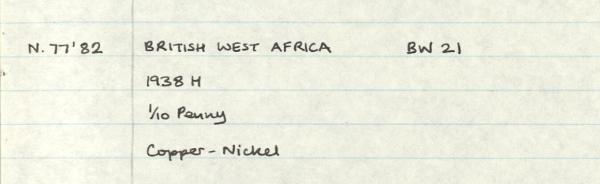 N. 77'82 BRITISH WEST AFRICA BW 21
1938 H
1/10 Penny
Copper - Nickel